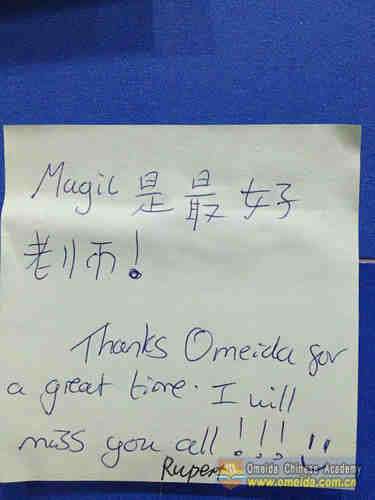 Magic 是 最 好
老师!
Thanks Omeida for
a great time. I will
miss you all!!!
Rupert
Omeida Chinese Academy
www.omeida.com.cn